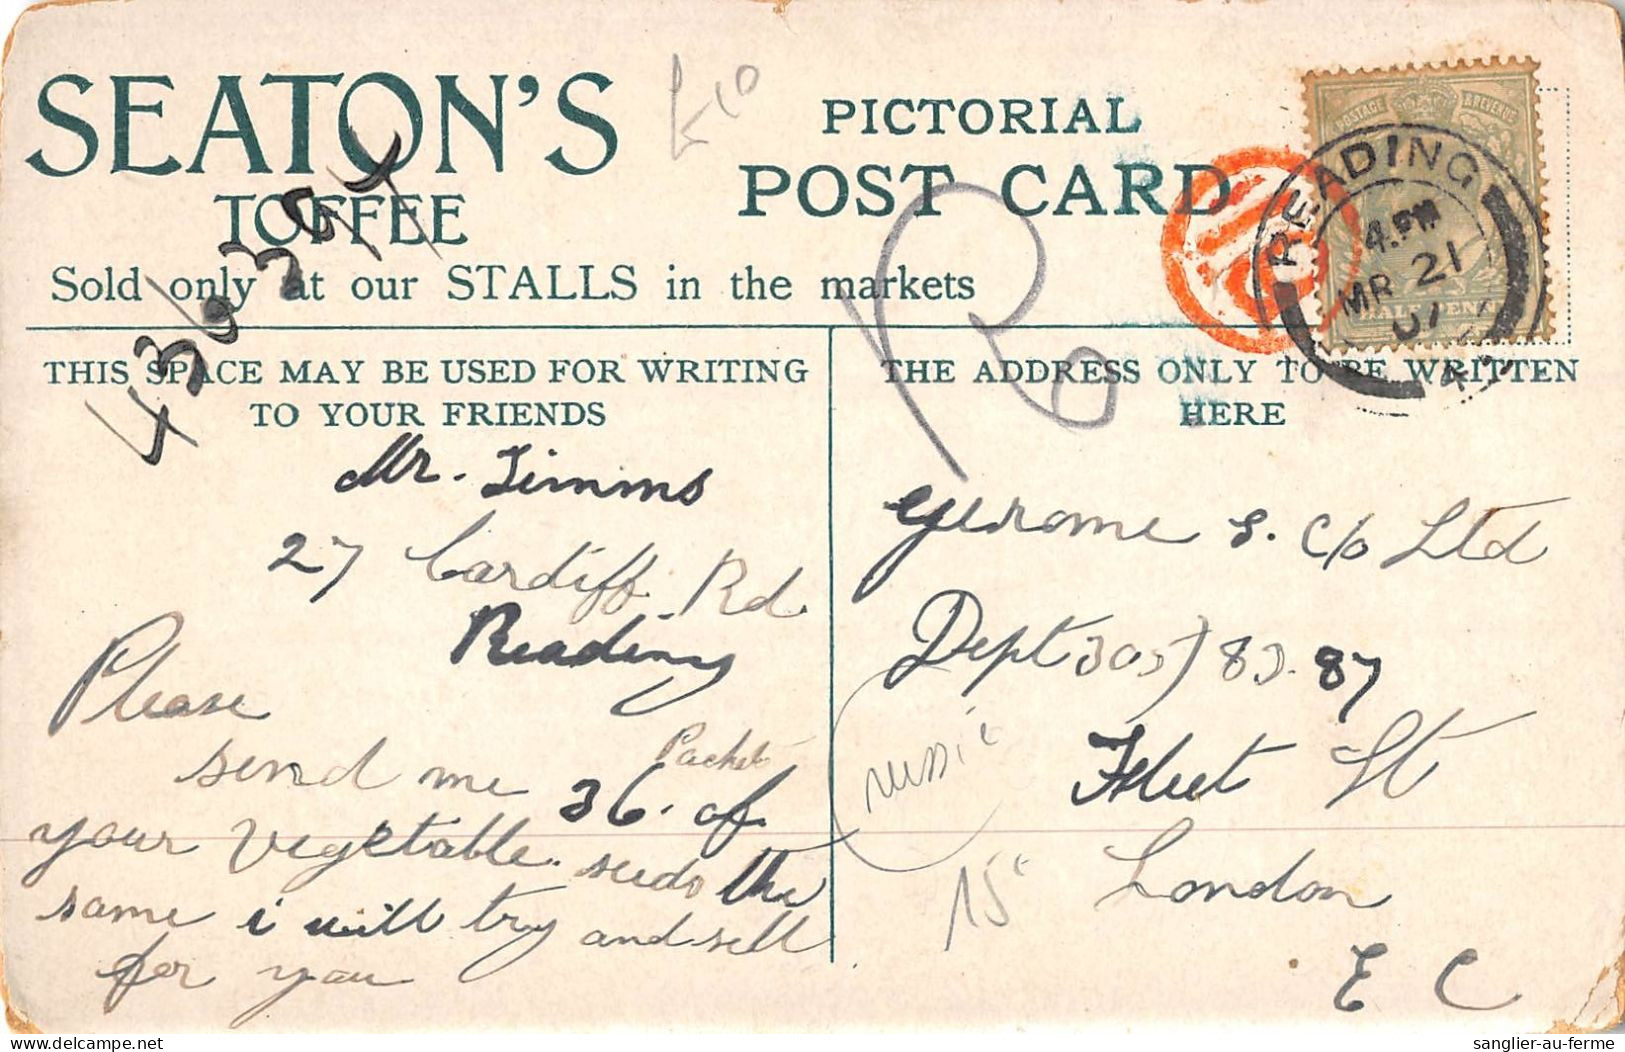 SEATON'S
TOFFEE
Sold only at our STALLS in the markets
PICTORIAL
POST CARD
POSTAGE & REVENUE
HALFPENNY
READING
4.PM
MR 21
07
436394
THIS SPACE MAY BE USED FOR WRITING
TO YOUR FRIENDS
Mr. Timms
27 Cardiff Rd
Reading
Please
send me 36. Packets of
your vegetable seeds the
same i will try and sell
for you
THE ADDRESS ONLY TO BE WRITTEN
HERE
Gerome S. C/o Ltd
Dept 305) 83. 87
Fleet St
London
E C
15
sanglier-au-ferme
delcampe.net